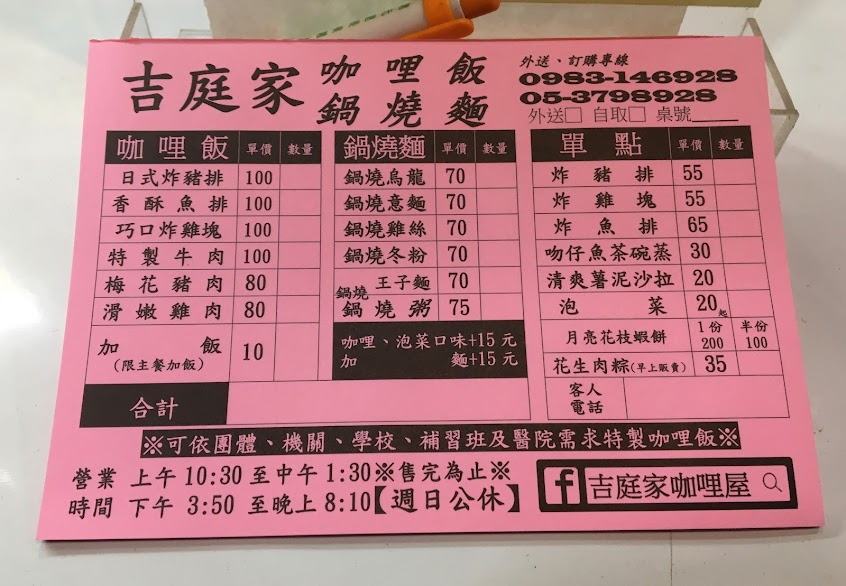 吉庭家 咖哩飯 鍋燒麵
外送、訂購專線
0983-146928
05-3798928
外送□ 自取□ 桌號____
咖哩飯 單價 數量
日式炸豬排 100
香酥魚排 100
巧口炸雞塊 100
特製牛肉 100
梅花豬肉 80
滑嫩雞肉 80
加飯 (限主餐加飯) 10
鍋燒麵 單價 數量
鍋燒烏龍 70
鍋燒意麵 70
鍋燒雞絲 70
鍋燒冬粉 70
鍋燒王子麵 70
鍋燒粥 75
咖哩、泡菜口味+15元
加麵+15元
單點 單價 數量
炸豬排 55
炸雞塊 55
炸魚排 65
吻仔魚茶碗蒸 30
清爽薯泥沙拉 20
泡菜 20起
月亮花枝蝦餅 1份 200 半份 100
花生肉粽(早上販賣) 35
客人電話
合計
※可依團體、機關、學校、補習班及醫院需求特製咖哩飯※
營業時間 上午 10:30 至中午 1:30※售完為止※
下午 3:50 至晚上 8:10【週日公休】
f 吉庭家咖哩屋